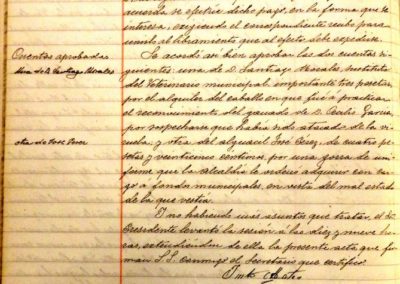 acuerda se efectúe dicho pago, en la forma que se
interesa, exigiendo el correspondiente recibo para
unirlo al libramiento que al efecto debe expedirse.
Cuentas aprobadas
Una de D. Santiago Morales
Se acordó así bien aprobar las dos cuentas si-
guientes: una de D. Santiago Morales, sustituto
del Veterinario municipal, importante tres pesetas
por el alquiler del caballo en que fué á practicar
el reconocimiento del ganado de D. Garcia
por sospecharse que había sido atacado de la vi-
otra de José Perez
ruela, y otra del alguacil José Perez, de cuatro pe-
setas y veinticinco centimos, por una gorra de uni-
forme que la Alcaldia le ordenó adquirir con car-
go a fondos municipales, en vista del mal estado
de la que vestía.
Y no habiendo más asuntos que tratar, el Sr.
Presidente levantó la sesión á las diez y nueve ho-
ras, extendiendose de ella la presente acta que fir-
man S.S. conmigo el Secretario que certifico.